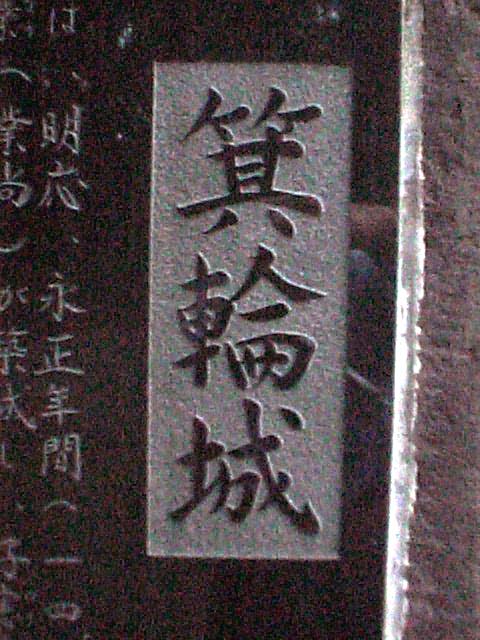 箕輪城
は、明応、永正年間(一四
(業尚)が築城し、